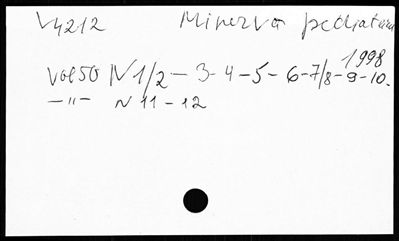 V4212 Minerva pediatrica
1998
Vol 50 N 1/2 - 3 - 4 - 5 - 6 - 7/8 - 9 - 10.
- " - N 11 - 12